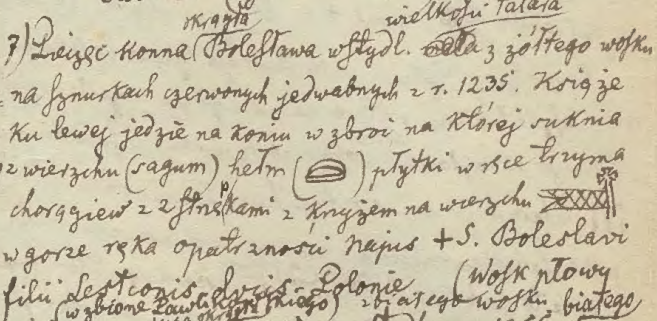 okrągła wielkości talara
7) Pieczęć konna Bolesława wstydl. cała z żółtego wosku
na sznurkach czerwonych jedwabnych z r. 1235. Książe
ku lewej jedzie na koniu w zbroi na której suknia
z wierzchu (sagum) hełm ( ) płytki w ręce trzyma
chorągiew z 2 strzępkami z krzyżem na wierzchu
w gorze ręka opatrzności napis + S. Boleslavi
filii Lestconis ducis Polonie (Wosk płowy
(w zbiorze z białego wosku białego